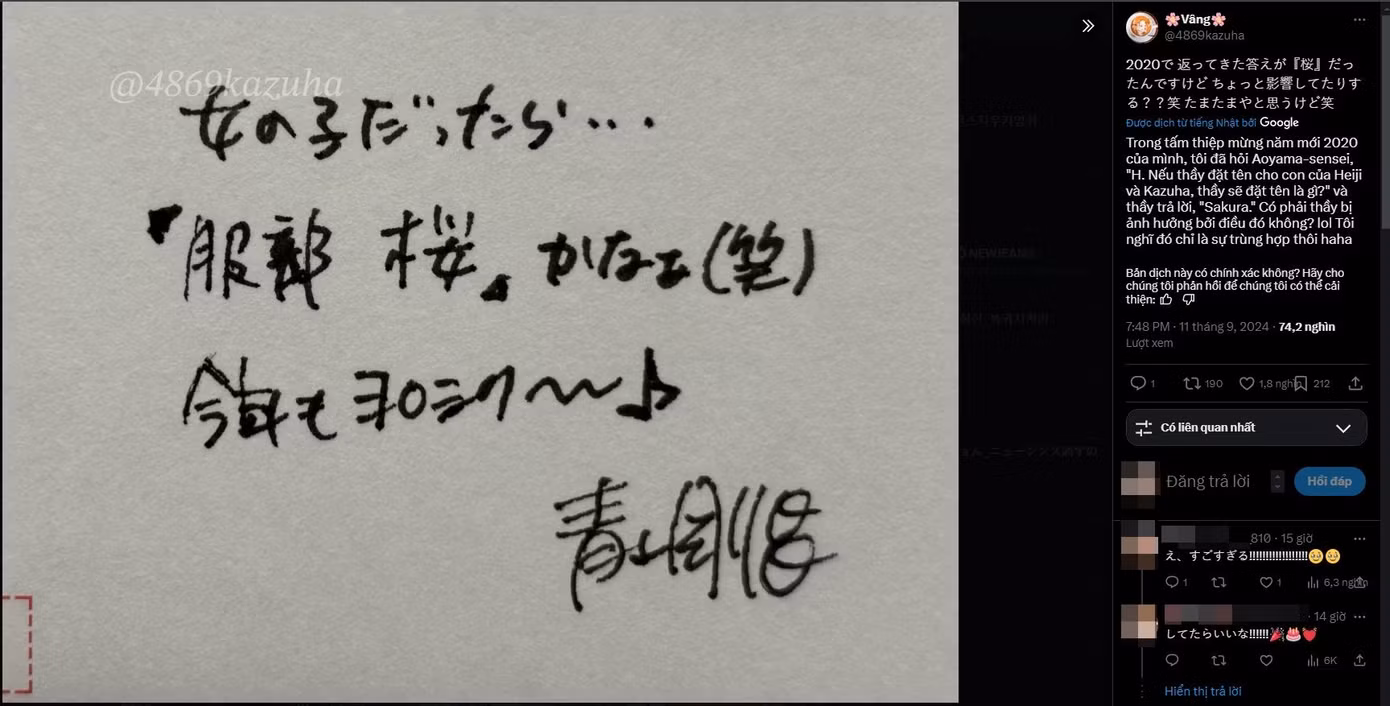 @4869kazuha
女の子だったら…
「服部 桜」かなぁ(笑)
今年もヨロシク〜〜♪
青山剛昌
🌸Vâng🌸
@4869kazuha
2020で 返ってきた答えが『桜』だっ
たんですけど ちょっと影響してたりす
る？？笑 たまたまやと思うけど笑
Được dịch từ tiếng Nhật bởi Google
Trong tấm thiệp mừng năm mới 2020
của mình, tôi đã hỏi Aoyama-sensei,
"H. Nếu thầy đặt tên cho con của Heiji
và Kazuha, thầy sẽ đặt tên là gì?" và
thầy trả lời, "Sakura." Có phải thầy bị
ảnh hưởng bởi điều đó không? lol Tôi
nghĩ đó chỉ là sự trùng hợp thôi haha
Bản dịch này có chính xác không? Hãy cho
chúng tôi phản hồi để chúng tôi có thể cải
thiện:
7:48 PM · 11 tháng 9, 2024 · 74,2 nghìn
Lượt xem
1 190 1,8 nghìn 212
Có liên quan nhất
Đăng trả lời
Hồi đáp
810 · 15 giờ
え、すごすぎる!!!!!!!!!!!!!!!!!!🥹🥹
1 1 6,3 nghìn
· 14 giờ
してたらいいな!!!!!!🎉🎂💓
6K
Hiển thị trả lời